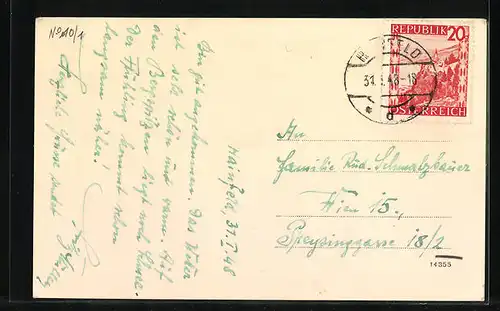 No 10/1
Hainfeld, 31. I. 48
Bin gut angekommen. Das Wetter
ist sehr schön und warm. Auf
den Bergspitzen liegt noch Schnee.
Der Frühling kommt schon
langsam näher!
Herzliche Grüße sendet
REPUBLIK 20
ÖSTERREICH
An
Familie Rud. Schmalzbauer
Wien 15.,
Speysinggasse 18/2
14355